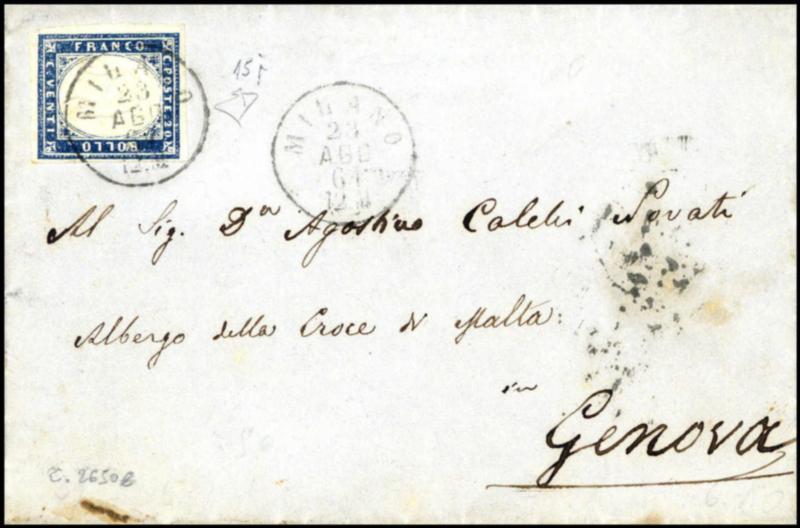 FRANCO
C. POSTE 20
BOLLO
C. VENTI
MILANO
23
AGO
12 M
15f
MILANO
23
AGO
61
12 M
Al Sig. Dn Agostino Calchi Novati
Albergo della Croce di Malta
in
Genova